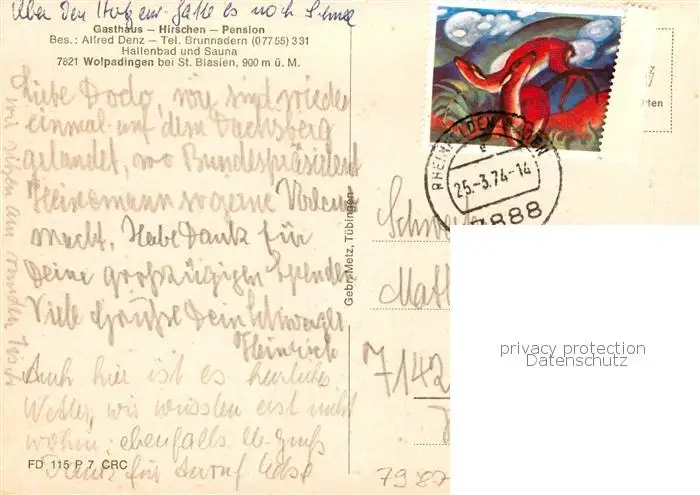 Über den Hotzenw. hatte es noch Schnee
Gasthaus – Hirschen – Pension
Bes.: Alfred Denz – Tel. Brunnadern (07755) 331
Hallenbad und Sauna
7821 Wolpadingen bei St. Blasien, 900 m ü. M.
Liebe Dodo, wir sind wieder
einmal auf dem Dachsberg
gelandet, wo Bundespräsident
Heinemann so gerne
macht. Habe Dank für
Deine großzügigen Spenden
Viele Grüße Dein Schwager
Heinrich
Auch hier ist es herrliches
Wetter, wir wussten erst nicht
wohin; ebenfalls Gruß
Dank für Anruf
wir sitzen am runden Tisch
FD 115 P 7 CRC
Gebr. Metz, Tübingen
RHEINFELDEN BADEN
e
25.-3.74-14
7888
7142
7987
privacy protection
Datenschutz